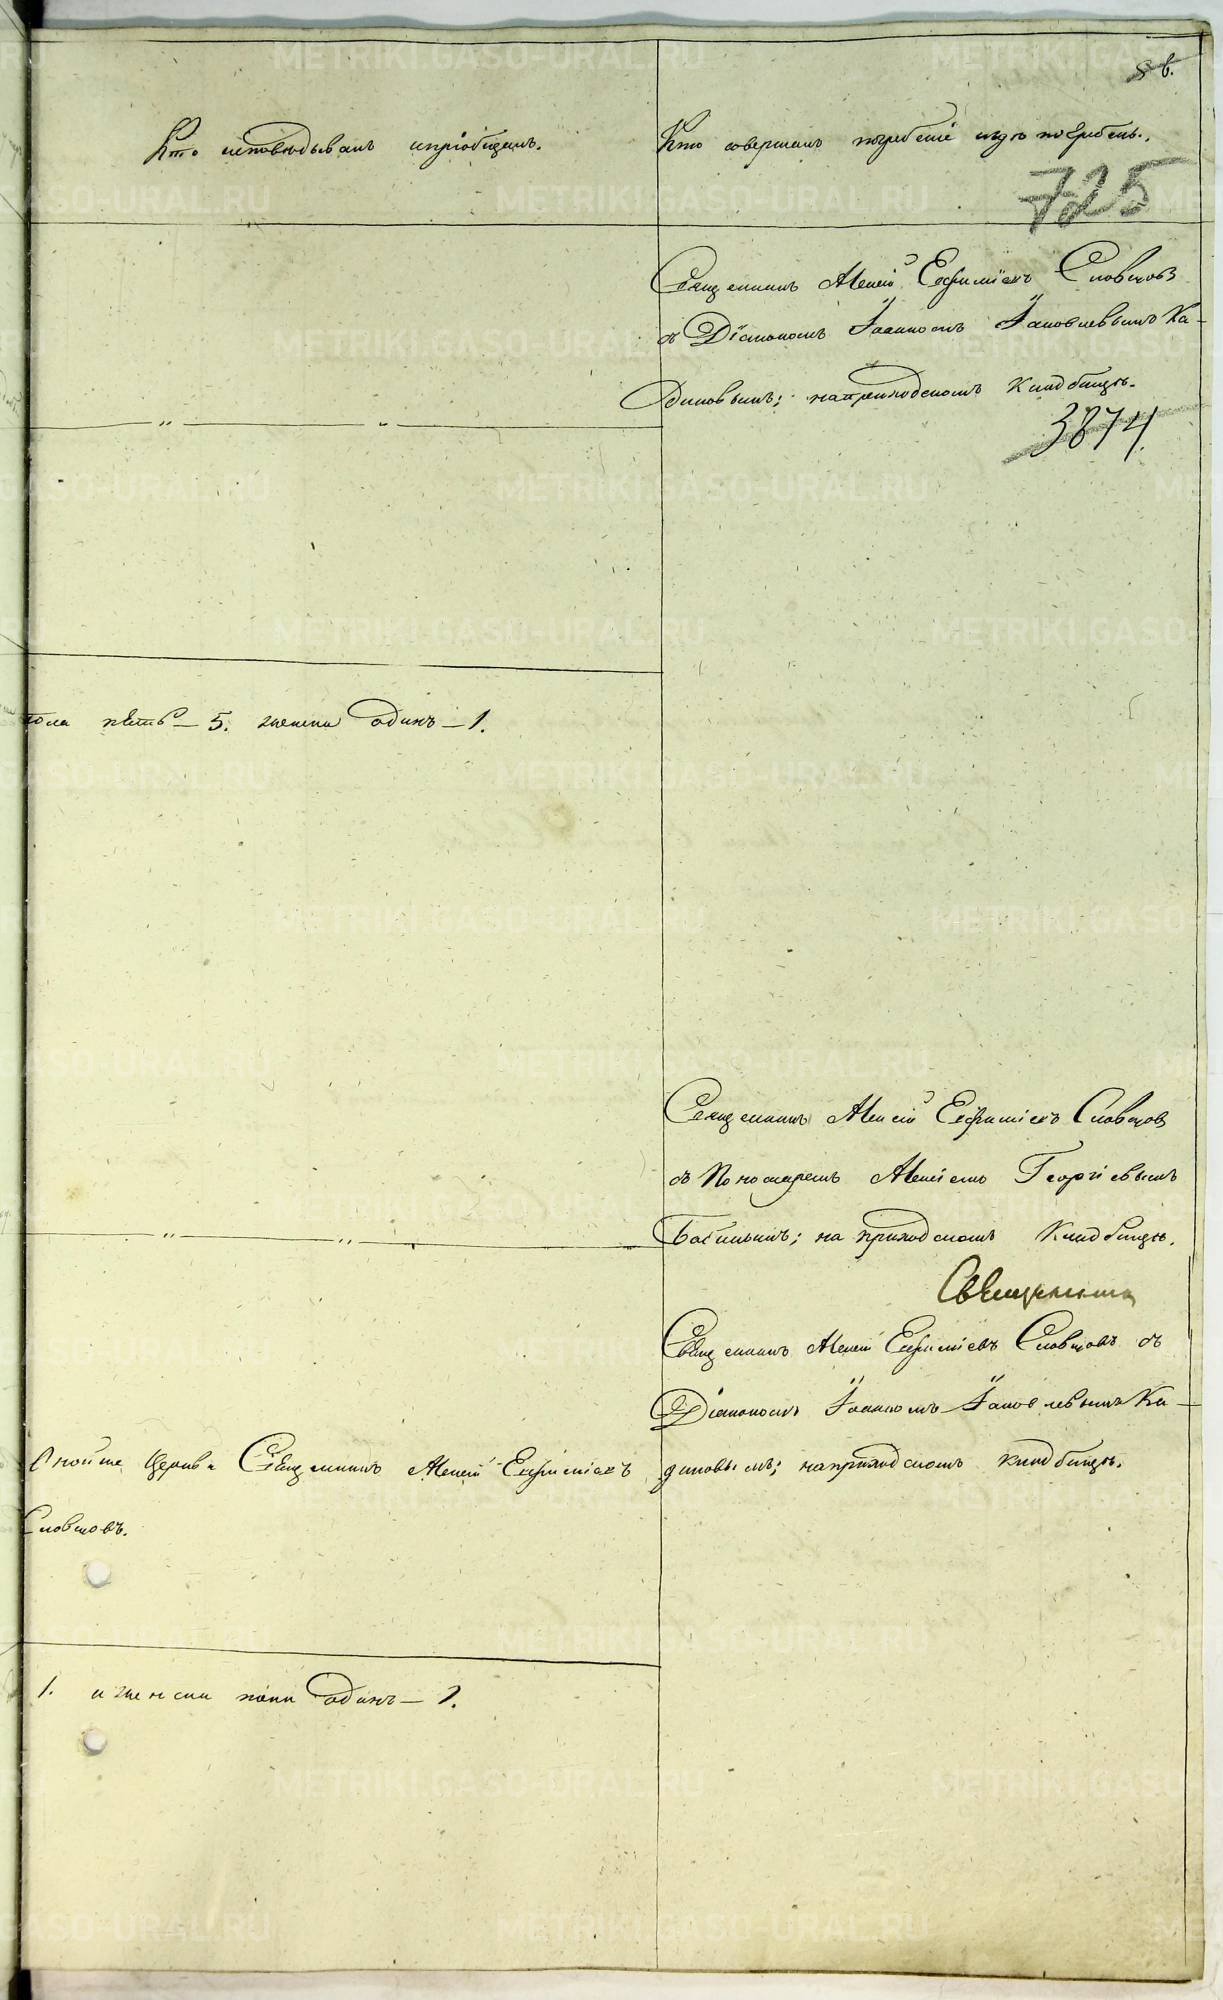 8 в.
Кто исповѣдывалъ и пріобщалъ.
Кто совершалъ погребеніе и гдѣ погребены.
725
Священникъ Алексій Евфиміевъ Словцовъ
съ Діакономъ Іоанномъ Іаковлевымъ Ка-
диновымъ; на приходскомъ кладбищѣ.
3874
пола пѣть – 5. женска одинъ – 1.
Священникъ Алексій Евфиміевъ Словцовъ
съ Пономаремъ Алексіемъ Георгіевымъ
на приходскомъ кладбищѣ.
Священника
Священникъ Алексій Евфиміевъ Словцовъ съ
Діакономъ Іоанномъ Іаковлевымъ Ка-
диновымъ; на приходскомъ кладбищѣ.
Церкви Священникъ Алексій Евфиміевъ
Словцовъ.
1. и женска пола одинъ – 1.
METRIKI.GASO-URAL.RU